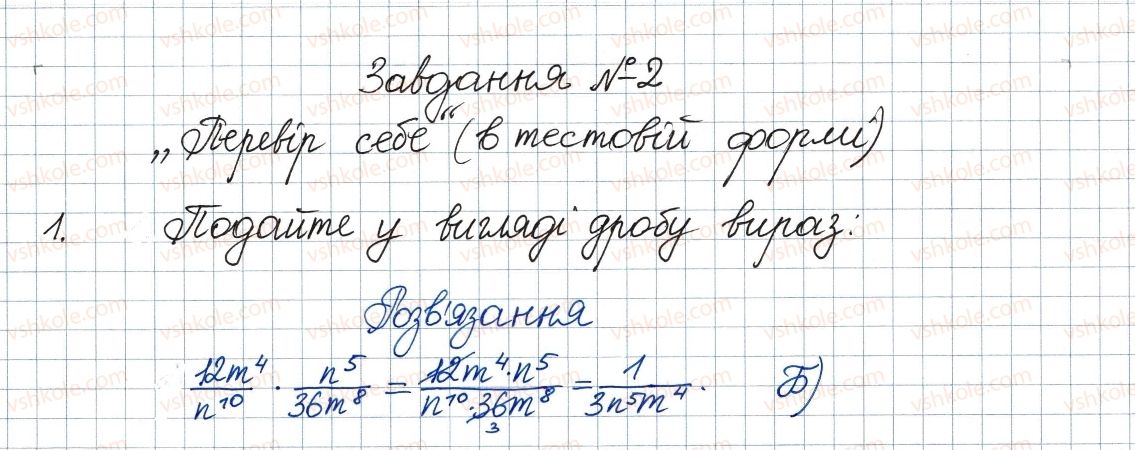 Завдання №2
„Перевір себе“ (в тестовій формі)
1. Подайте у вигляді дробу вираз:
Розв'язання
12m⁴/n¹⁰ · n⁵/36m⁸ = 12m⁴·n⁵/n¹⁰·36m⁸ = 1/3n⁵m⁴. Б)
3